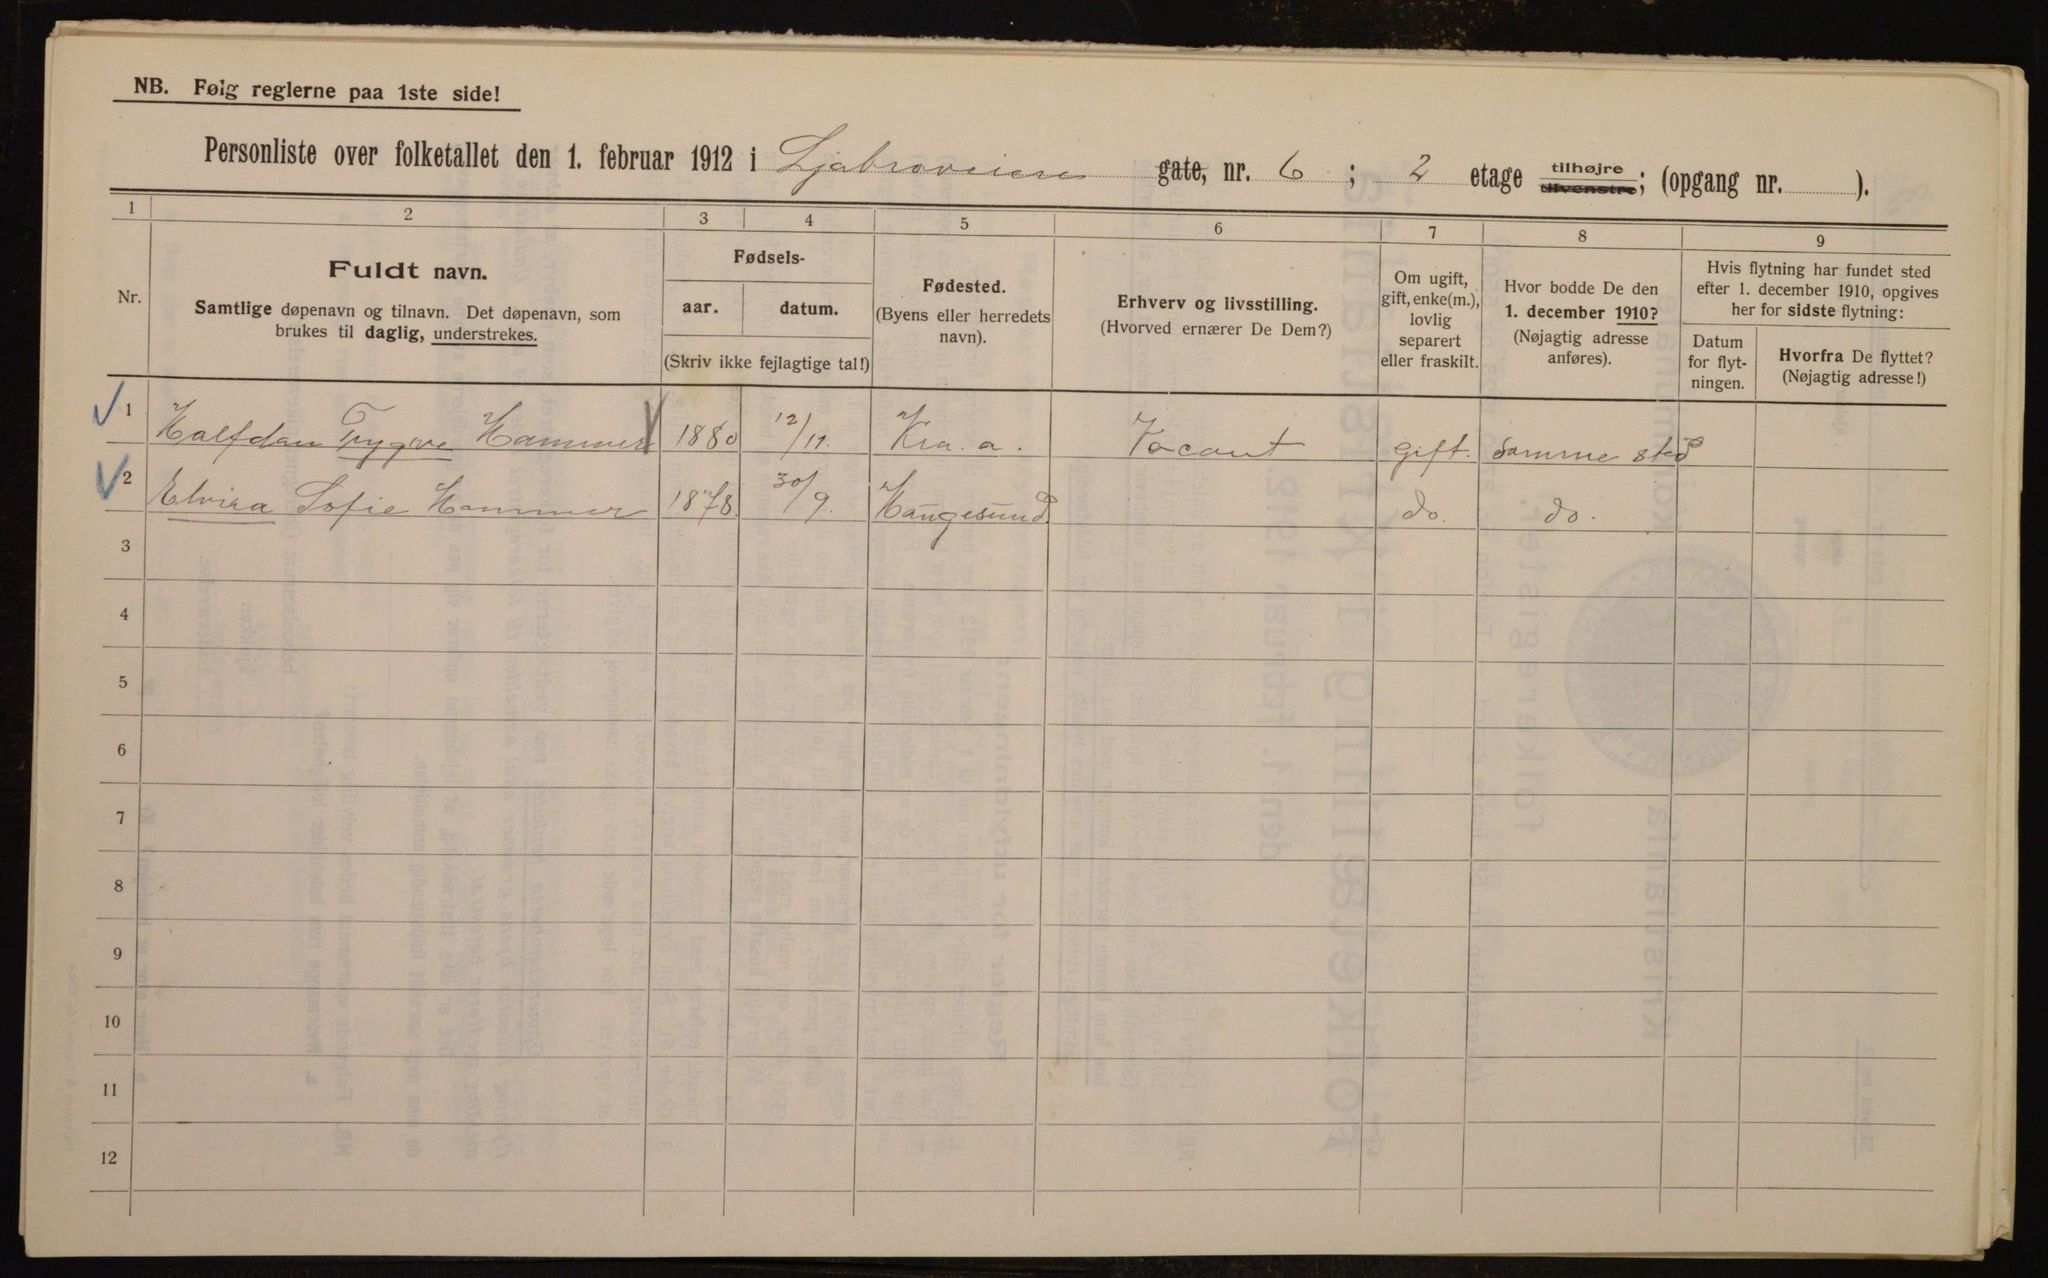 NB. Følg reglerne paa 1ste side!
Personliste over folketallet den 1. februar 1912 i Ljabroveien gate, nr. 6 ; 2 etage tilhøjre tilvenstre; (opgang nr. ).
1 2 3 4 5 6 7 8 9
Nr.
Fuldt navn.
Samtlige døpenavn og tilnavn. Det døpenavn, som
brukes til daglig, understrekes.
Fødsels-
aar. datum.
(Skriv ikke fejlagtige tal!)
Fødested.
(Byens eller herredets
navn).
Erhverv og livsstilling.
(Hvorved ernærer De Dem?)
Om ugift,
gift, enke(m.),
lovlig
separert
eller fraskilt.
Hvor bodde De den
1. december 1910?
(Nøjagtig adresse
anføres).
Hvis flytning har fundet sted
efter 1. december 1910, opgives
her for sidste flytning:
Datum
for flyt-
ningen.
Hvorfra De flyttet?
(Nøjagtig adresse!)
1 Halfdan Trygve Hammer 1880 12/11. Kra.a. Vacant gift. Samme sted
2 Elvira Sofie Hammer 1878. 30/9. Haugesund. do. do.
3
4
5
6
7
8
9
10
11
12